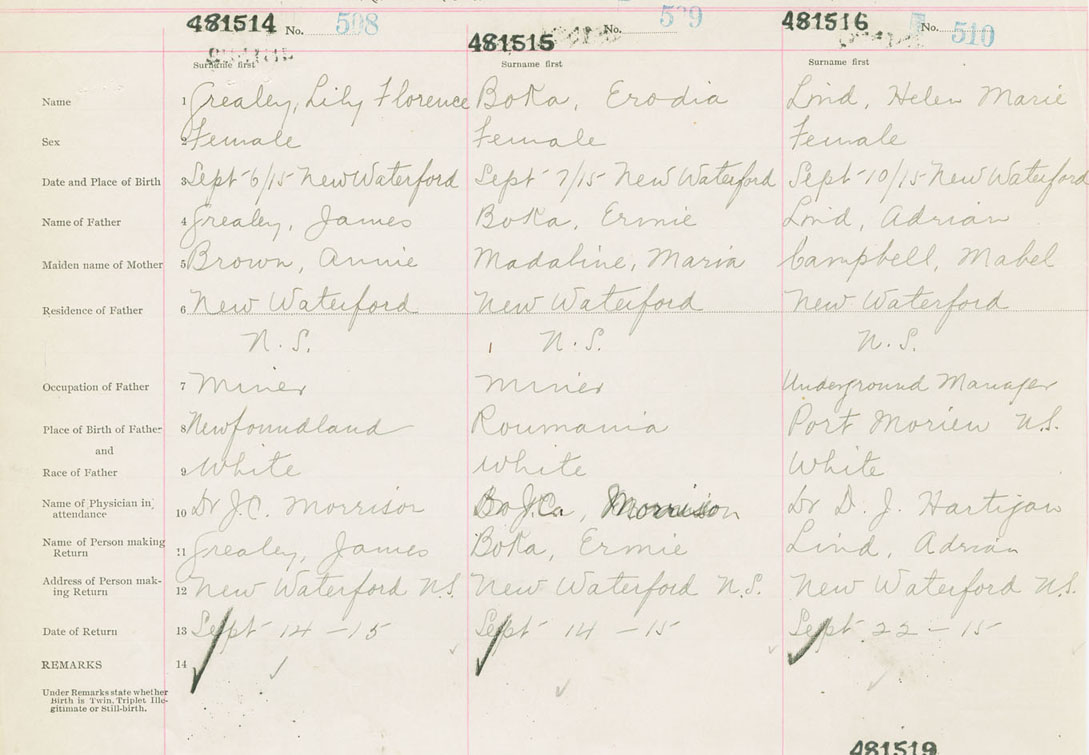 481514 No. 508
481515 No. 509
481516 No. 510
Surname first Surname first Surname first
Name 1 Grealey, Lily Florence Boka, Erodia Lind, Helen Marie
Sex 2 Female Female Female
Date and Place of Birth 3 Sept 6/15 New Waterford Sept 7/15 New Waterford Sept 10/15 New Waterford
Name of Father 4 Grealey, James Boka, Ermie Lind, Adrian
Maiden name of Mother 5 Brown, Annie Madaline, Maria Campbell, Mabel
Residence of Father 6 New Waterford New Waterford New Waterford
N.S. N.S. N.S.
Occupation of Father 7 Miner Miner Underground Manager
Place of Birth of Father 8 Newfoundland Roumania Port Morien N.S.
and
Race of Father 9 White White White
Name of Physician in attendance 10 Dr J.C. Morrison Morrison Dr D. J. Hartigan
Name of Person making Return 11 Grealey, James Boka, Ermie Lind, Adrian
Address of Person mak-
ing Return 12 New Waterford N.S. New Waterford N.S. New Waterford N.S.
Date of Return 13 Sept 14 - 15 Sept 14 - 15 Sept 22 - 15
REMARKS 14
Under Remarks state whether
Birth is Twin, Triplet Ille-
gitimate or Still-birth.
481519